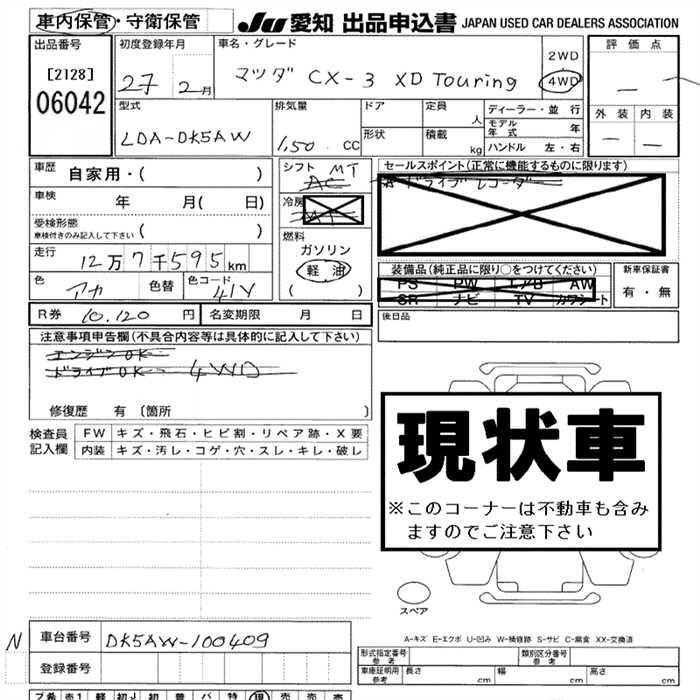 車内保管・守衛保管 JU 愛知 出品申込書 JAPAN USED CAR DEALERS ASSOCIATION
出品番号
[2128]
06042
初度登録年月
27 2月
車名・グレード
マツダ CX-3 XD Touring
2WD
4WD
評価点
—
外装 内装
— —
型式
LDA-DK5AW
排気量
1,50 CC
ドア
形状
定員 人
積載 kg
ディーラー・並行
モデル年式 年
ハンドル 左・右
車歴 自家用・( )
車検 年 月( 日)
受検形態 ( )
車検付きのみ記入して下さい
走行 12万7千595km
色 アカ 色替 色コード 41V
R券 10,120 円 名変期限 月 日
シフト MT
AC
冷房
燃料
ガソリン
軽油
( )
セールスポイント(正常に機能するものに限ります)
ドライブレコーダー
装備品(純正品に限り○をつけてください)
PS PW エアB AW
SR ナビ TV カワシート
新車保証書
有・無
後日品
注意事項申告欄(不具合内容等は具体的に記入して下さい)
エンジンOK
ドライブOK 4WD
修復歴 有〔箇所 〕
検査員記入欄
FW キズ・飛石・ヒビ割・リペア跡・X要
内装 キズ・汚レ・コゲ・穴・スレ・キレ・破レ
現状車
※このコーナーは不動車も含み
ますのでご注意下さい
スペア
A-キズ E-エクボ U-凹み W-補修跡 S-サビ C-腐食 XX-交換済
N 車台番号 DK5AW-100409
登録番号
形式指定番号 参考
類別区分番号 参考
車庫証明用 参考 長さ cm 幅 cm 高さ cm